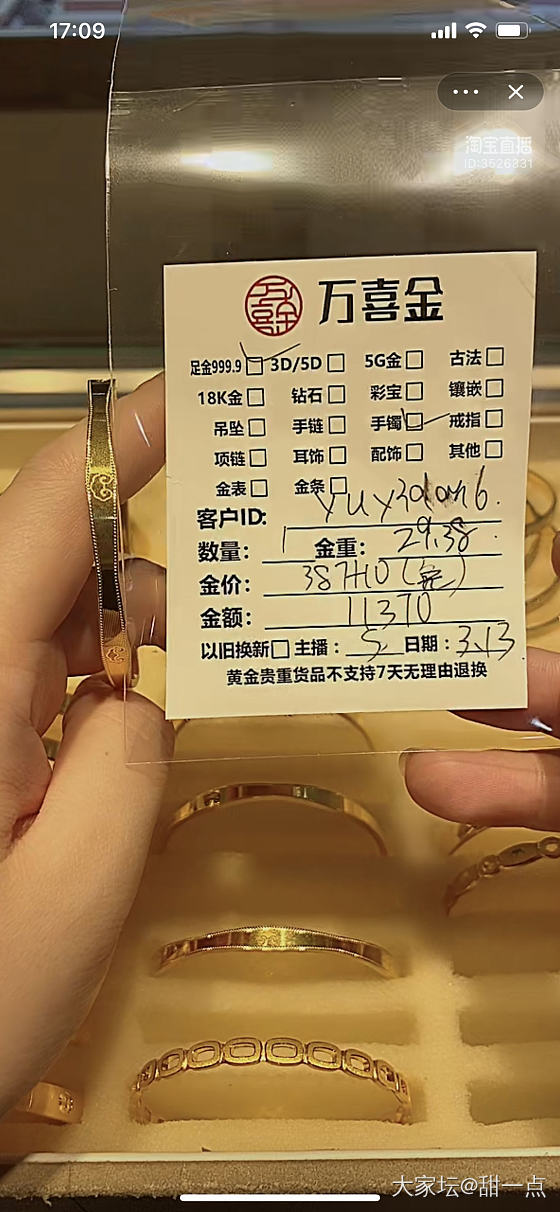 17:09
淘宝直播
ID:3526331
万喜金
万喜金
足金999.9 3D/5D 5G金 古法
18K金 钻石 彩宝 镶嵌
吊坠 手链 手镯 戒指
项链 耳饰 配饰 其他
金表 金条
客户ID:
数量: 1 金重: 29.38
金价: 387+10
金额: 11370
以旧换新 主播: 5 日期: 3.13
黄金贵重货品不支持7天无理由退换
大家坛@甜一点